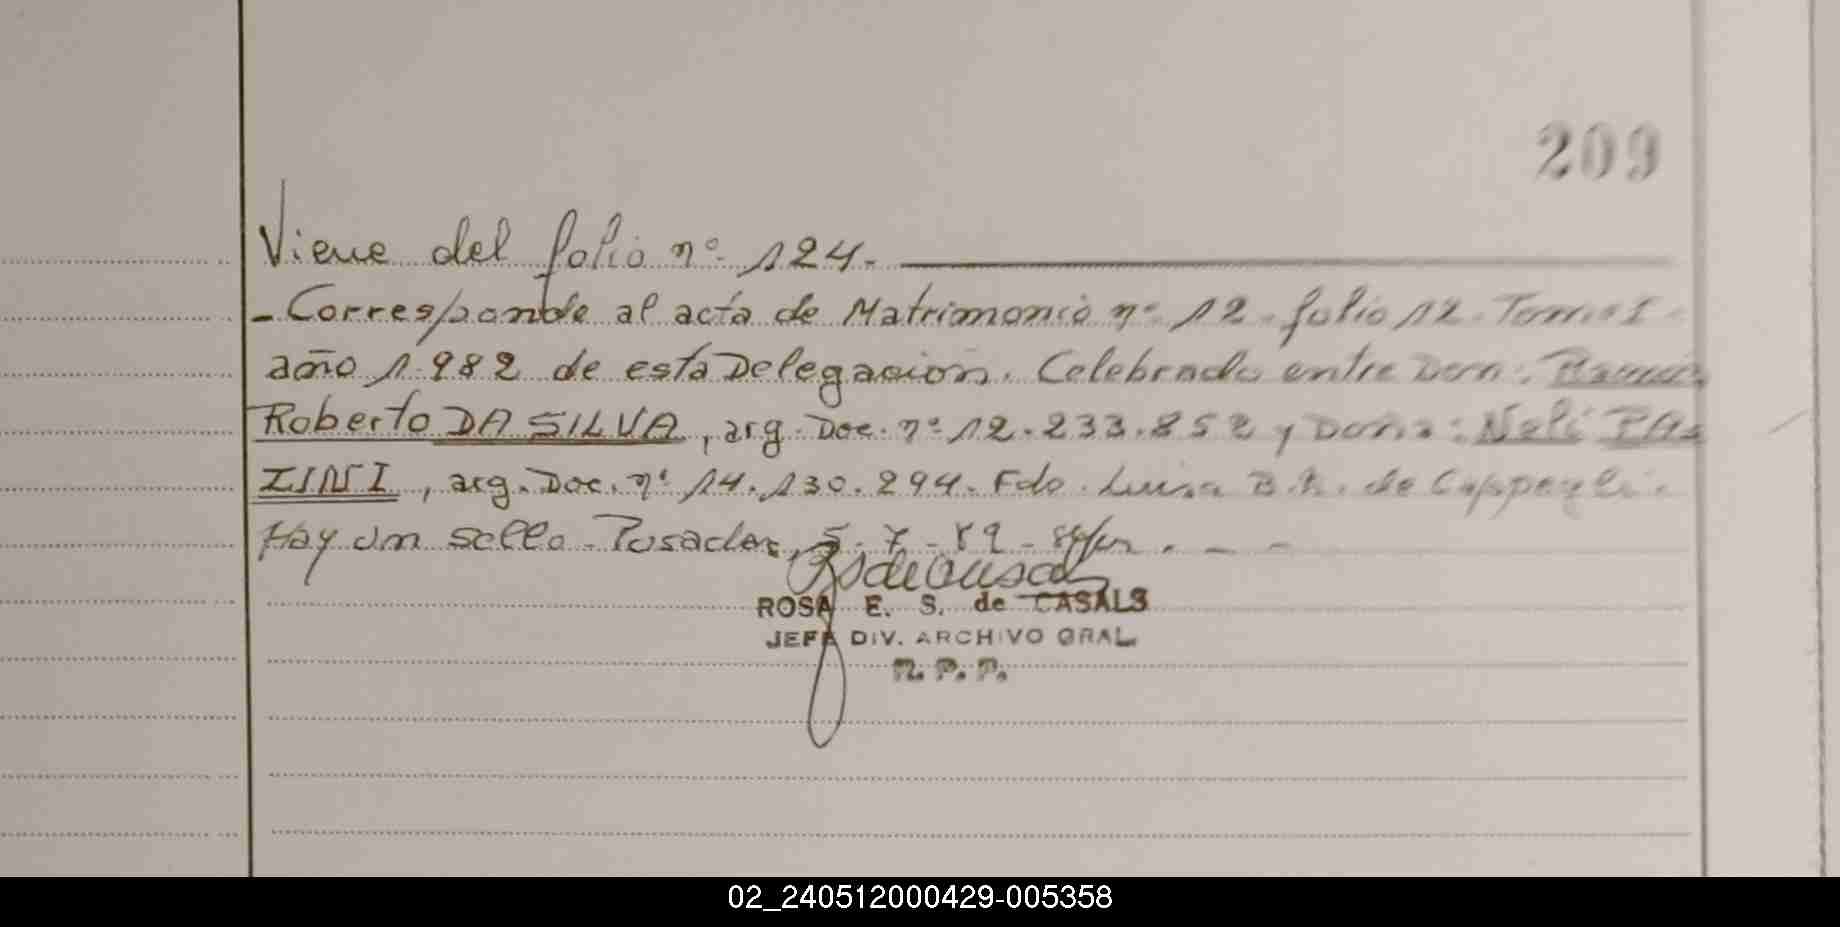 209
Viene del folio nº 124.
- Corresponde al acta de Matrimonio nº 12. folio 12. Tomo I
año 1.982 de esta Delegación. Celebrado entre Don: Ramón
Roberto DA SILVA, arg. Doc. nº 12.233.852 y Doña: Neli
ZINI, arg. Doc. nº 14.130.294. Fdo. Luisa B. de
Hay un sello. Posadas, 5-7-89-
ROSA E. S. de CASALS
JEFA DIV. ARCHIVO GRAL.
R. P. P.
02_240512000429-005358